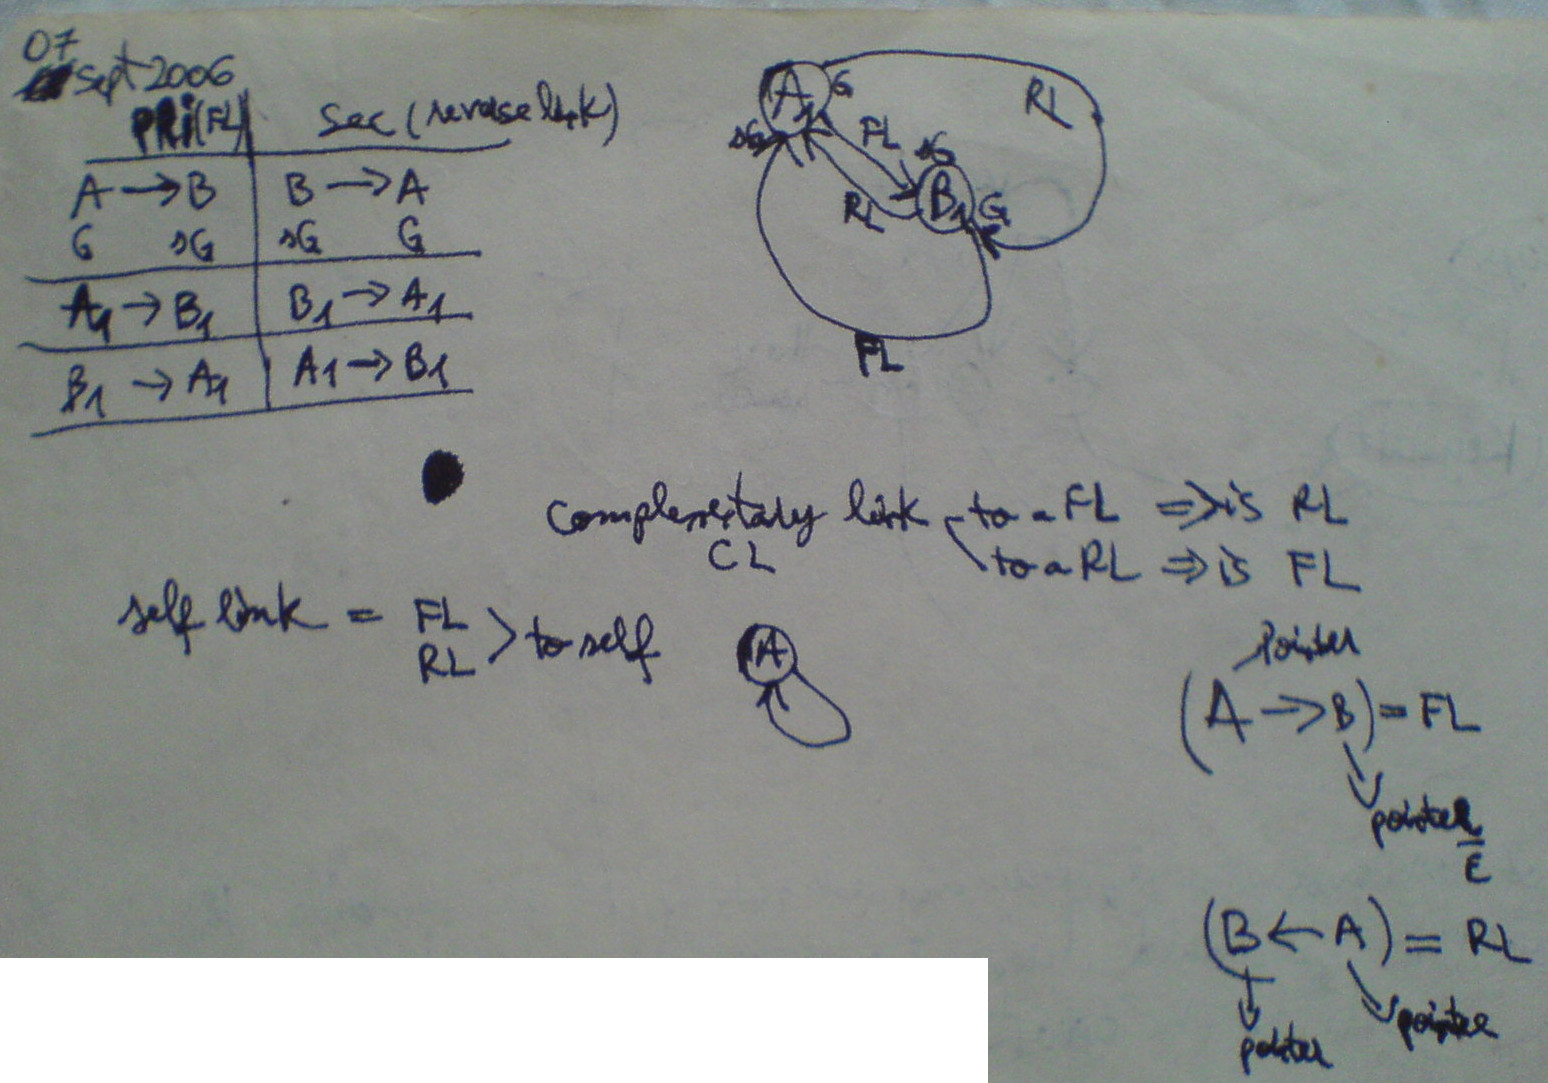 07
Sept 2006
PRi(FL) Sec (reverse link)
A → B B → A
G sG sG G
A1 → B1 B1 → A1
B1 → A1 A1 → B1
A1 G
sG
FL
RL
RL
sG
B1 G
FL
Complementary link to a FL => is RL
CL to a RL => is FL
self link = FL > to self
RL
A
Pointer
(A → B) = FL
pointee
E
(B ← A) = RL
pointee